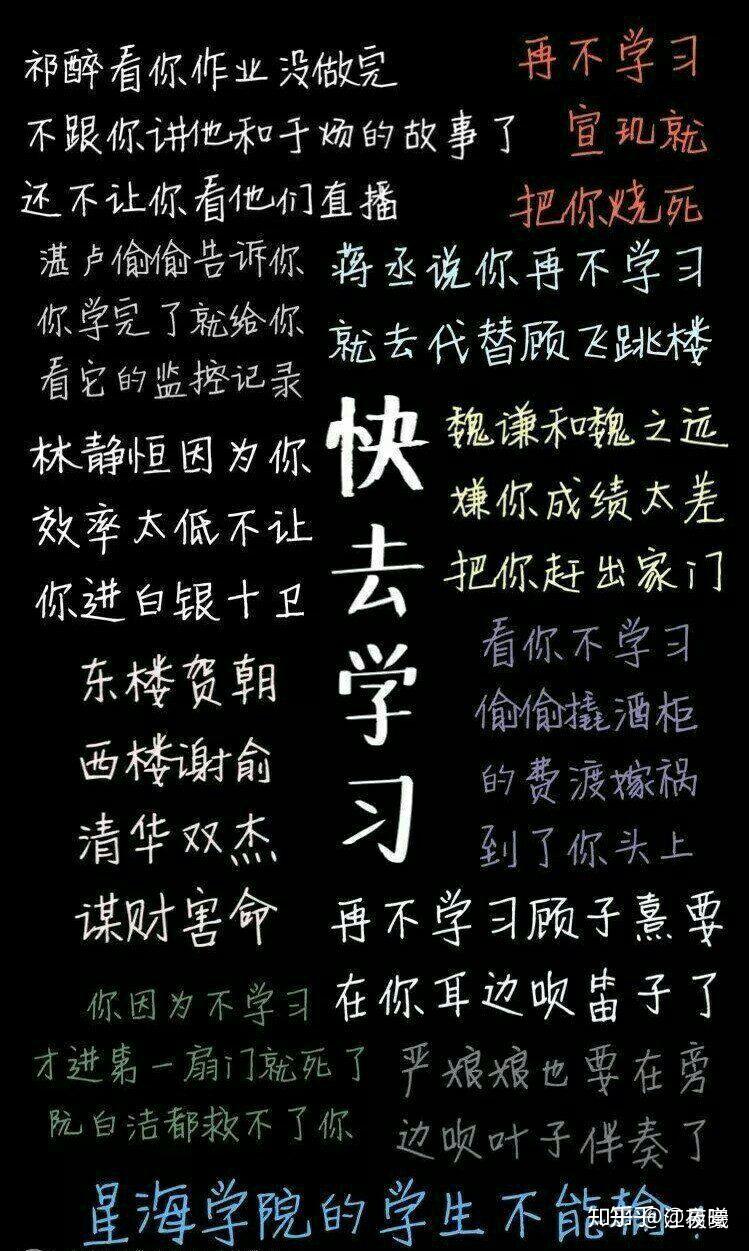 祁醉看你作业没做完
不跟你讲他和于炀的故事了
还不让你看他们直播
再不学习
宣玑就
把你烧死
湛卢偷偷告诉你
你学完了就给你
看它的监控记录
蒋丞说你再不学习
就去代替顾飞跳楼
林静恒因为你
效率太低不让
你进白银十卫
快
去
学
习
魏谦和魏之远
嫌你成绩太差
把你赶出家门
看你不学习
偷偷撬酒柜
的费渡嫁祸
到了你头上
东楼贺朝
西楼谢俞
清华双杰
谋财害命
再不学习顾子熹要
在你耳边吹笛子了
你因为不学习
才进第一扇门就死了
阮白洁都救不了你
严娘娘也要在旁
边吹叶子伴奏了
星海学院的学生不能输！
知乎 @江夜曦